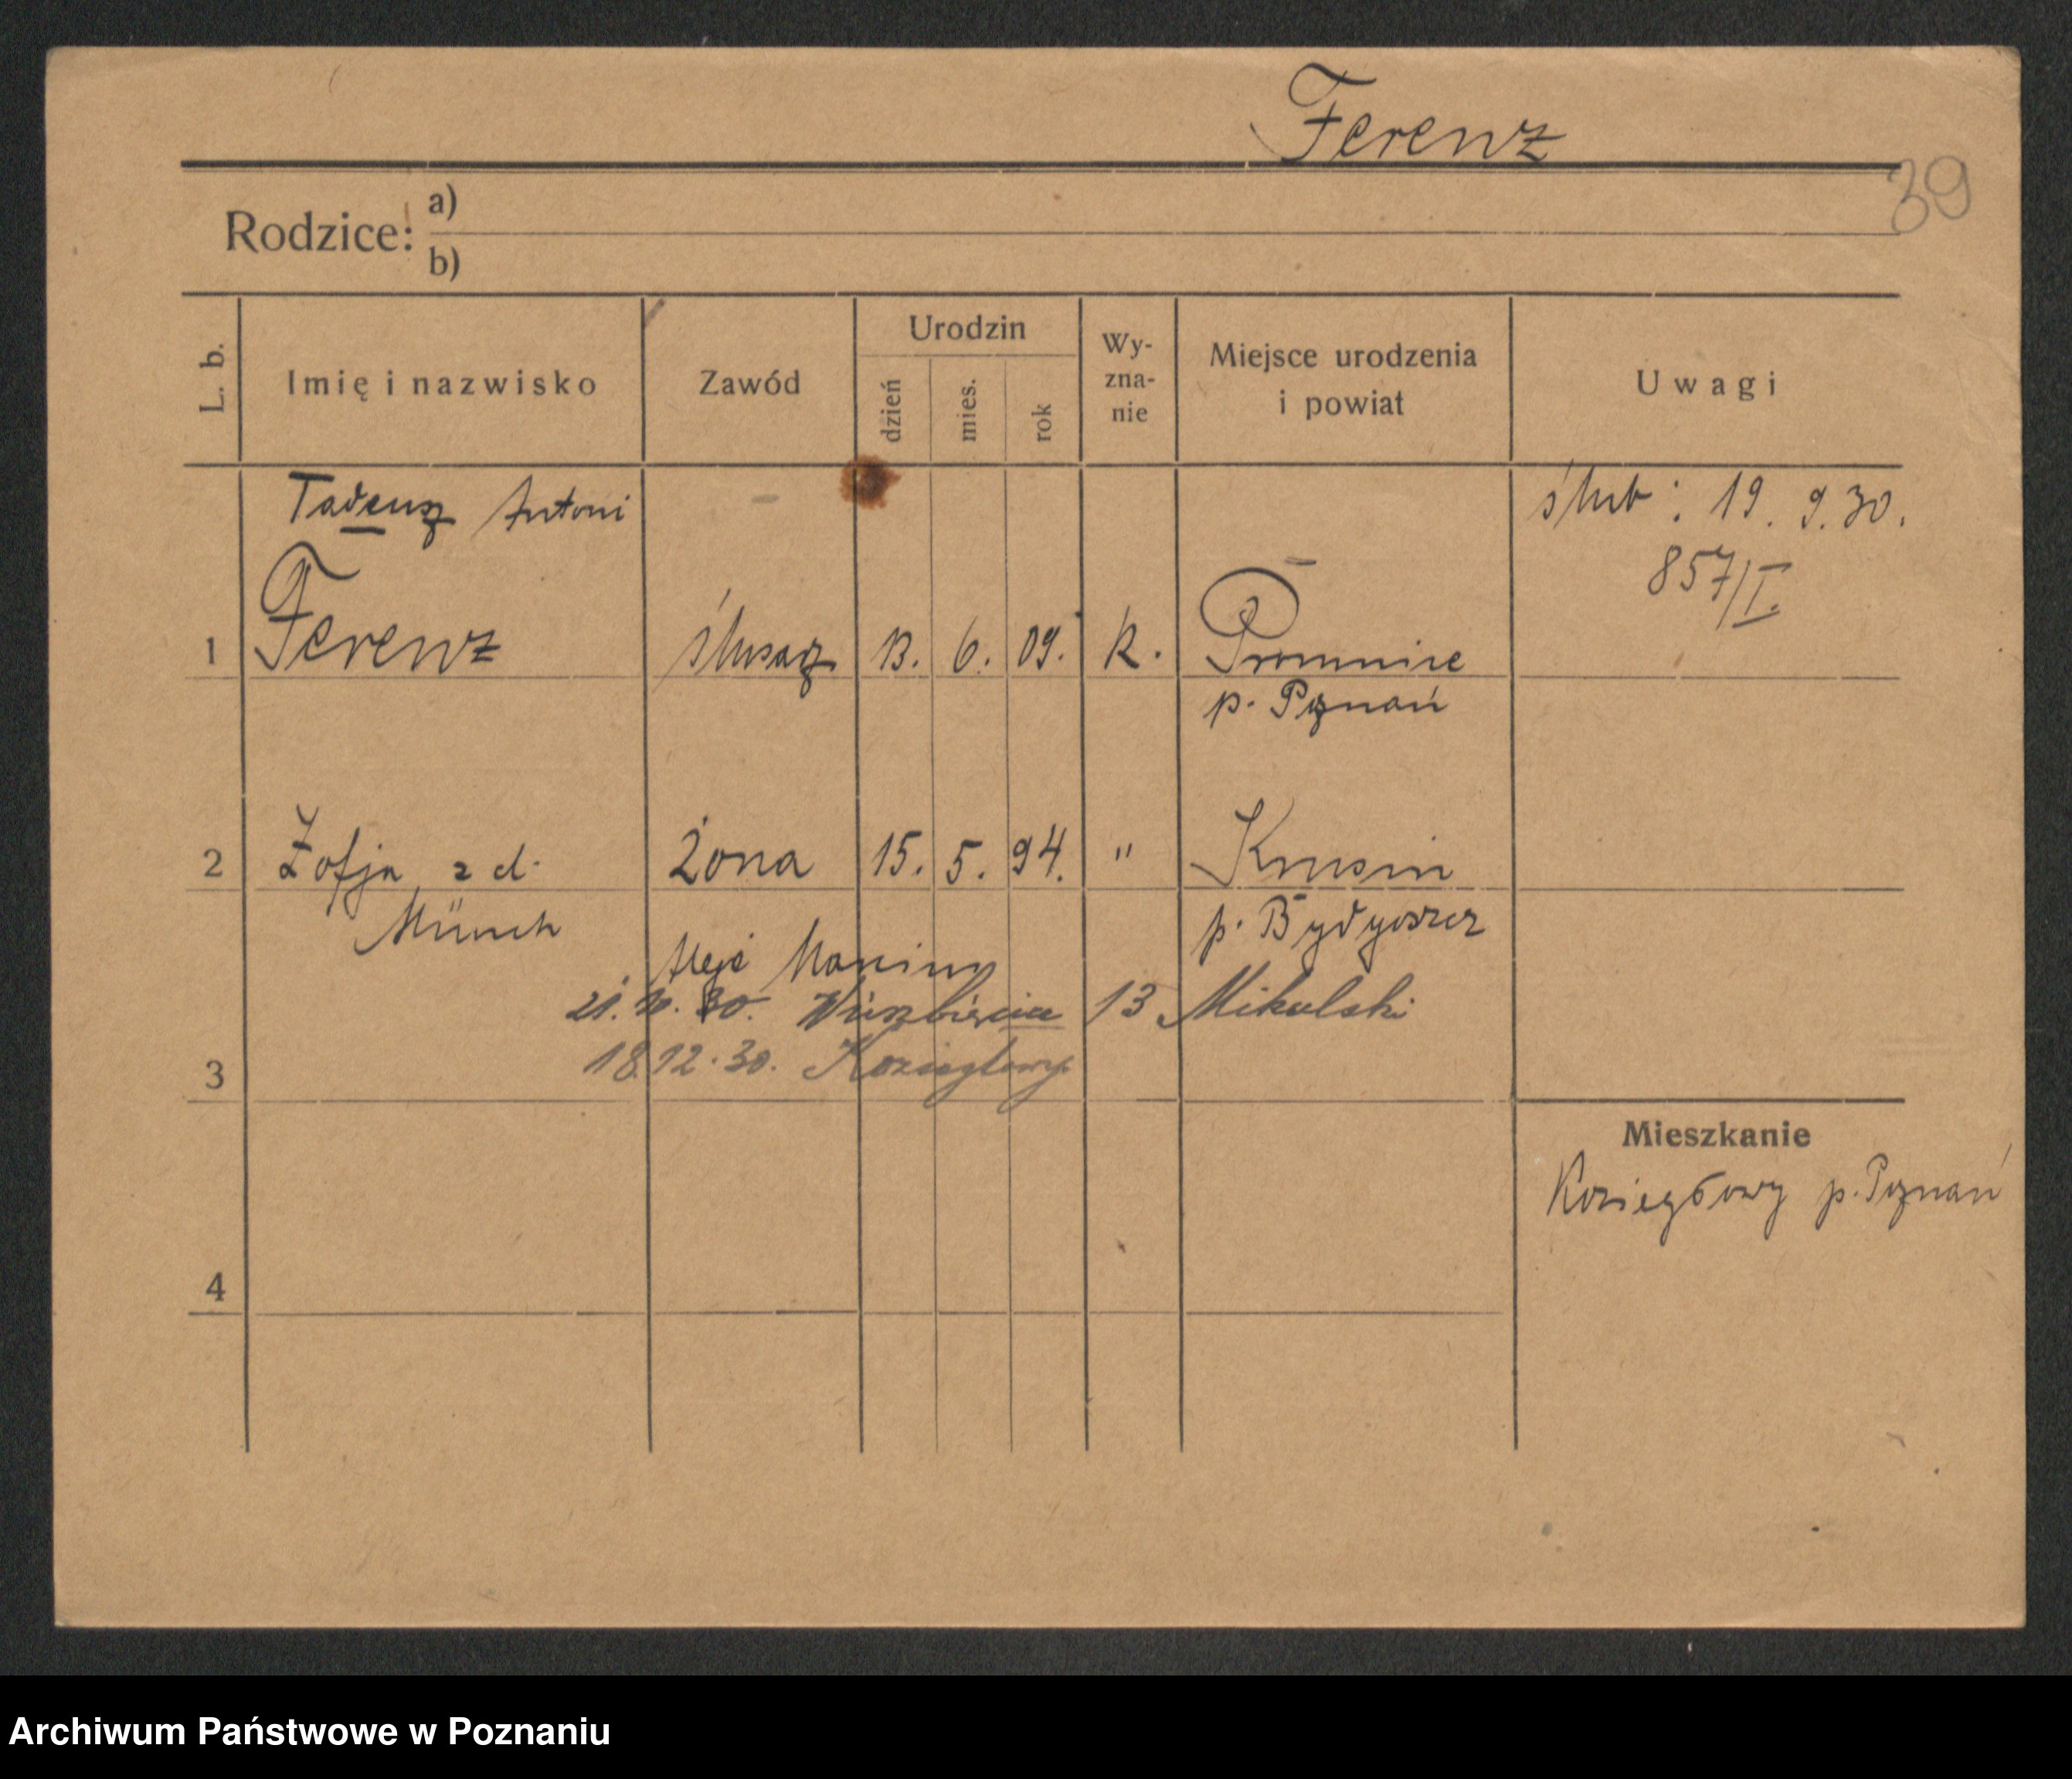 Ferenz
39
Rodzice: a)
b)
L. b.
Imię i nazwisko
Zawód
Urodzin
dzień
mies.
rok
Wy-
zna-
nie
Miejsce urodzenia
i powiat
Uwagi
Tadeusz Antoni
ślub: 19. 9. 30.
857/I.
1 Ferenz ślusarz 13. 6. 09. k. Promnice
p. Poznań
2 Zofja z d. żona 15. 5. 94. " Krusin
Münch
p. Bydgoszcz
21. 10. 30. Wierzbięcice 13 Mikulski
18.12.30. Koziegłowy
3
Mieszkanie
Koziegłowy p. Poznań
4
Archiwum Państwowe w Poznaniu